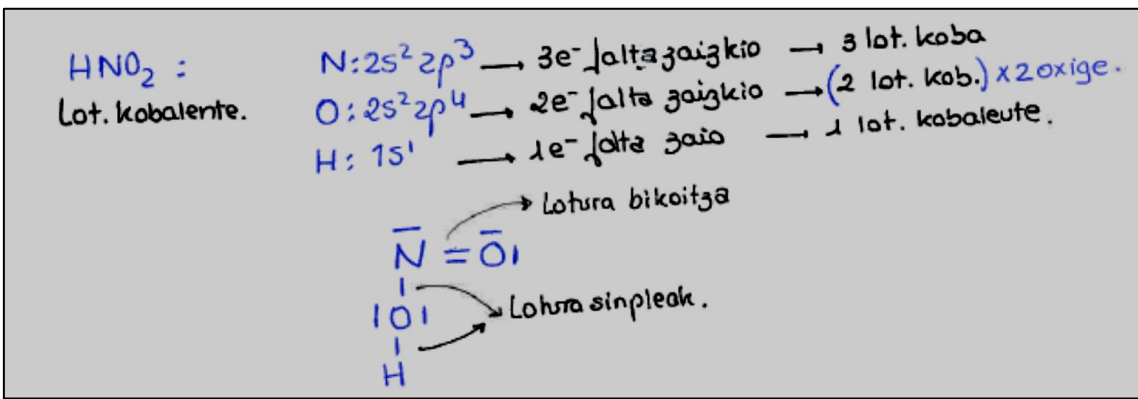 HNO₂ :
Lot. kobalente.
N: 2s² 2p³ → 3e⁻ falta zaizkio → 3 lot. koba
O: 2s² 2p⁴ → 2e⁻ falta zaizkio → (2 lot. kob.) x 2 oxige.
H: 1s¹ → 1e⁻ falta zaio → 1 lot. kobalente.
Lotura bikoitza
N = O
O
Lotura sinpleak.
H